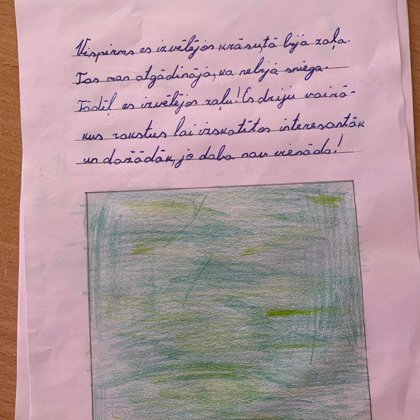 Vispirms es izvēlējos krāsu, tā bija zaļa.
Tas man atgādināja, ka nebija sniega.
Tādēļ es izvēlējos zaļu! Es vairā-
kus rakstus lai izskatītos interesantāk
un dažādāk, jo daba nav vienāda!